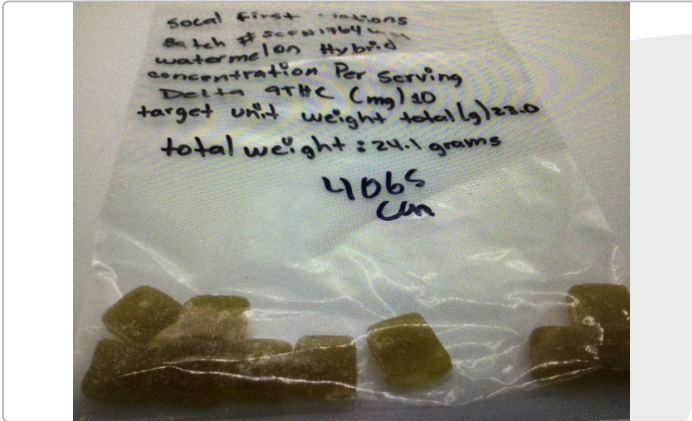 Socal First
Batch #
watermelon Hybrid
concentration Per Serving
Delta 9THC (mg) 10
target unit weight total (g) 23.0
total weight : 24.1 grams
4065